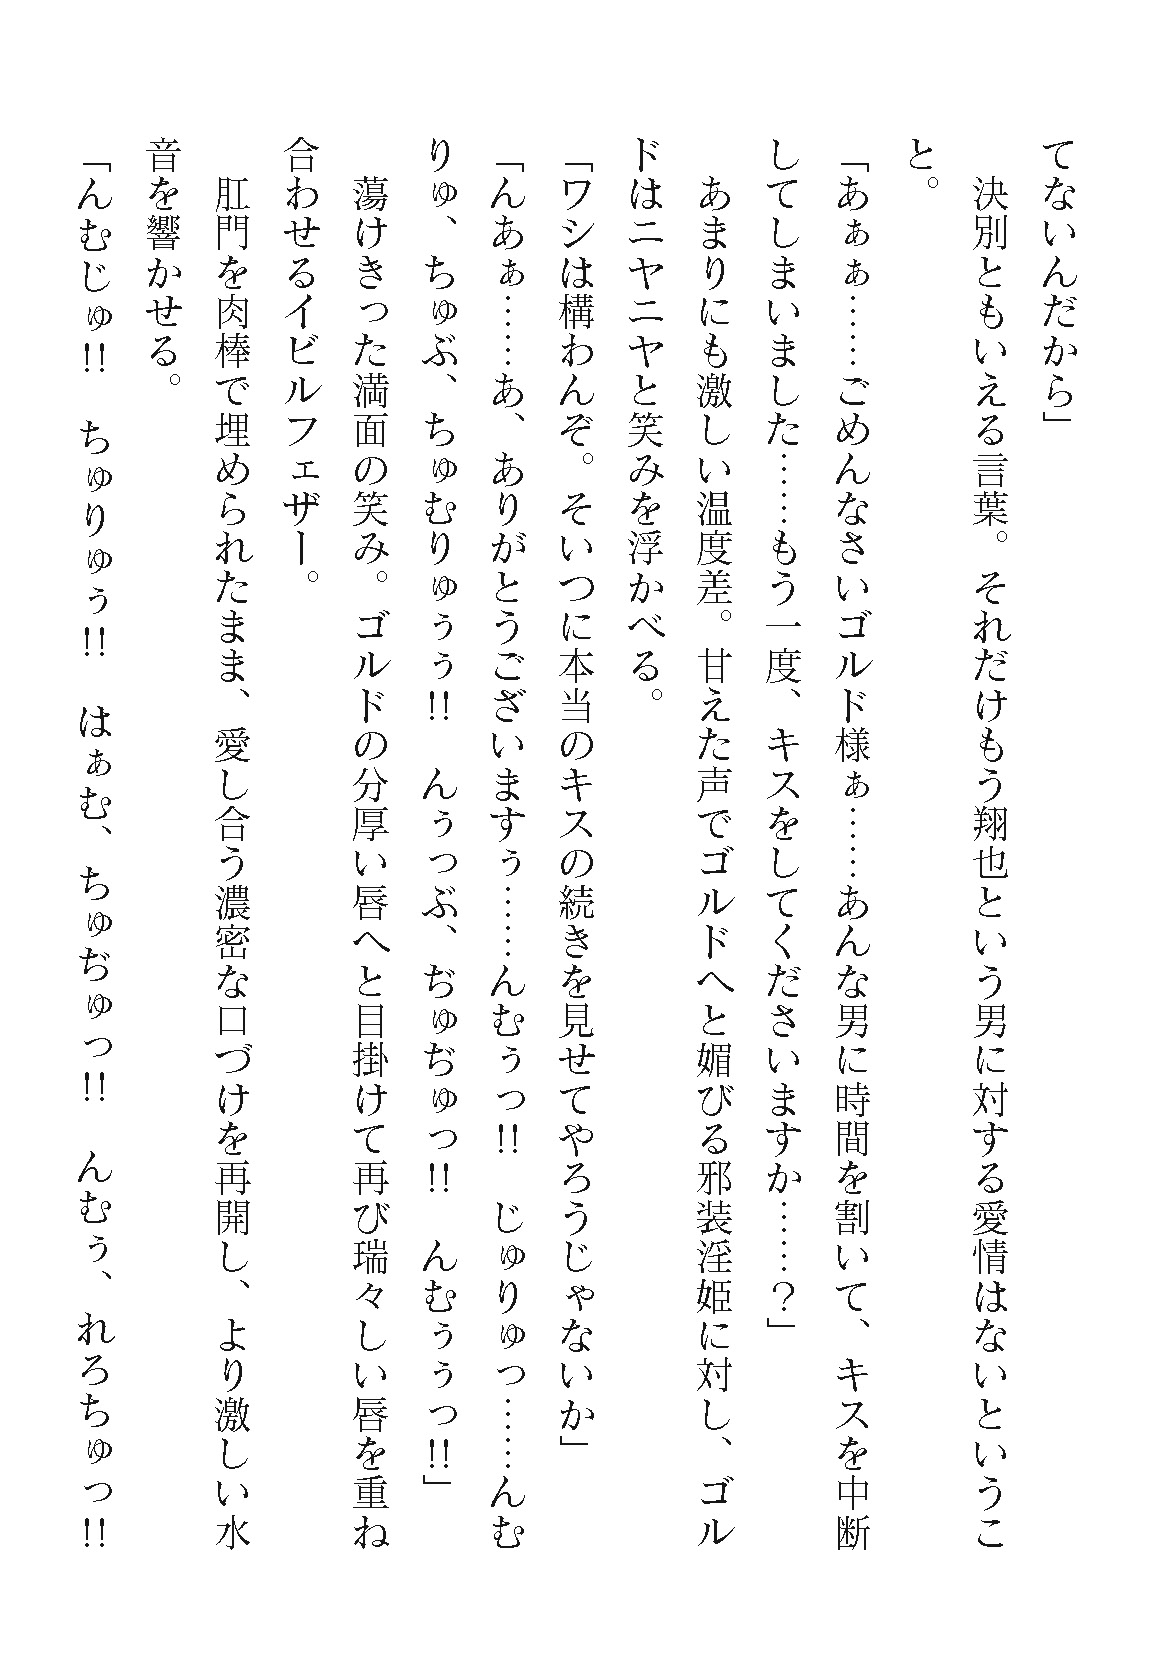 てないんだから」
　決別ともいえる言葉。それだけもう翔也という男に対する愛情はないというこ
と。
「あぁぁ……ごめんなさいゴルド様ぁ……あんな男に時間を割いて、キスを中断
してしまいました……もう一度、キスをしてくださいますか……？」
　あまりにも激しい温度差。甘えた声でゴルドへと媚びる邪装淫姫に対し、ゴル
ドはニヤニヤと笑みを浮かべる。
「ワシは構わんぞ。そいつに本当のキスの続きを見せてやろうじゃないか」
「んあぁ……あ、ありがとうございますぅ……んむぅっ!!　じゅりゅっ……んむ
りゅ、ちゅぶ、ちゅむりゅぅぅ!!　んぅっぶ、ぢゅぢゅっ!!　んむぅぅっ!!」
　蕩けきった満面の笑み。ゴルドの分厚い唇へと目掛けて再び瑞々しい唇を重ね
合わせるイビルフェザー。
　肛門を肉棒で埋められたまま、愛し合う濃密な口づけを再開し、より激しい水
音を響かせる。
「んむじゅ!!　ちゅりゅぅ!!　はぁむ、ちゅぢゅっ!!　んむぅ、れろちゅっ!!